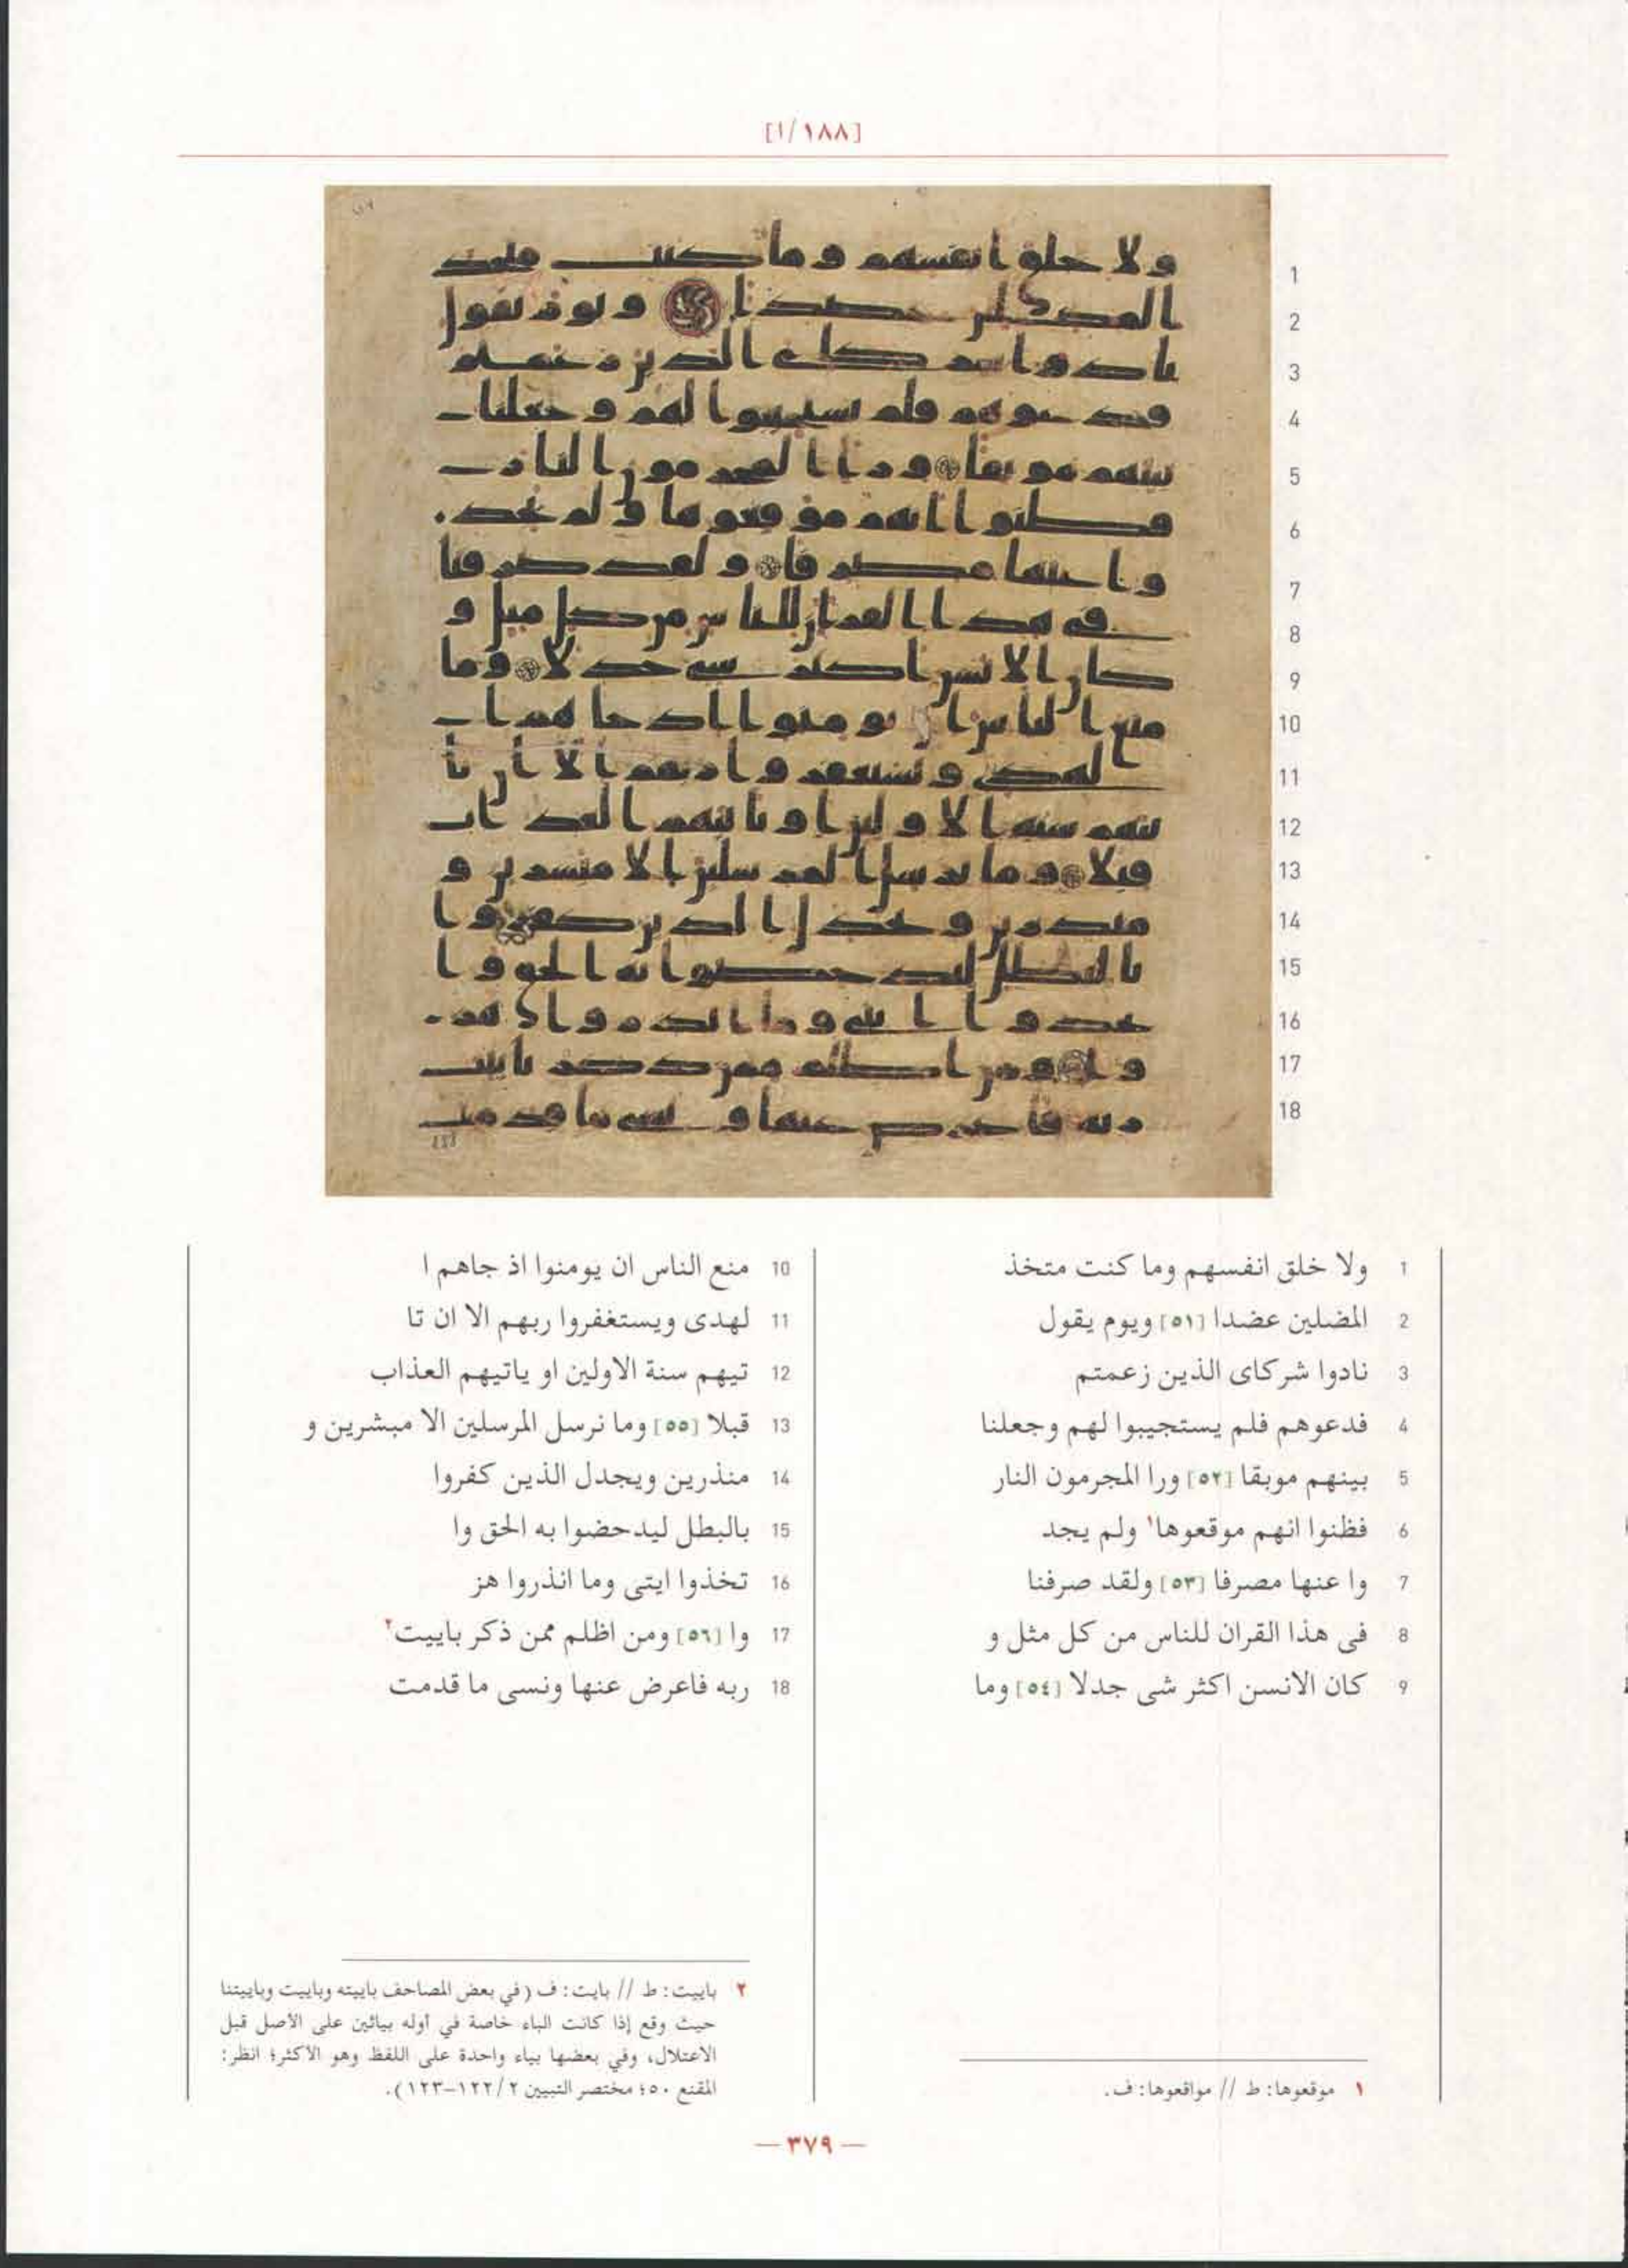 [١٨٨/ا]
1 ولا خلق انفسهم وما كنت متخذ
2 المضلين عضدا [٥١] ويوم يقول
3 نادوا شركاى الذين زعمتم
4 فدعوهم فلم يستجيبوا لهم وجعلنا
5 بينهم موبقا [٥٢] ورا المجرمون النار
6 فظنوا انهم موقعوها١ ولم يجد
7 وا عنها مصرفا [٥٣] ولقد صرفنا
8 فى هذا القران للناس من كل مثل و
9 كان الانسن اكثر شى جدلا [٥٤] وما
١ موقعوها: ط // مواقعوها: ف.
10 منع الناس ان يومنوا اذ جاهم ا
11 لهدى ويستغفروا ربهم الا ان تا
12 تيهم سنة الاولين او ياتيهم العذاب
13 قبلا [٥٥] وما نرسل المرسلين الا مبشرين و
14 منذرين ويجدل الذين كفروا
15 بالبطل ليدحضوا به الحق وا
16 تخذوا ايتى وما انذروا هز
17 وا [٥٦] ومن اظلم ممن ذكر باييت٢
18 ربه فاعرض عنها ونسى ما قدمت
٢ باييت: ط // بايت: ف (في بعض المصاحف باييته وباييت وباييتنا
حيث وقع إذا كانت الباء خاصة في أوله بيائين على الأصل قبل
الاعتلال، وفي بعضها بياء واحدة على اللفظ وهو الأكثر؛ انظر:
المقنع ٥٠؛ مختصر التبيين ٢/ ١٢٢–١٢٣).
— ٣٧٩ —